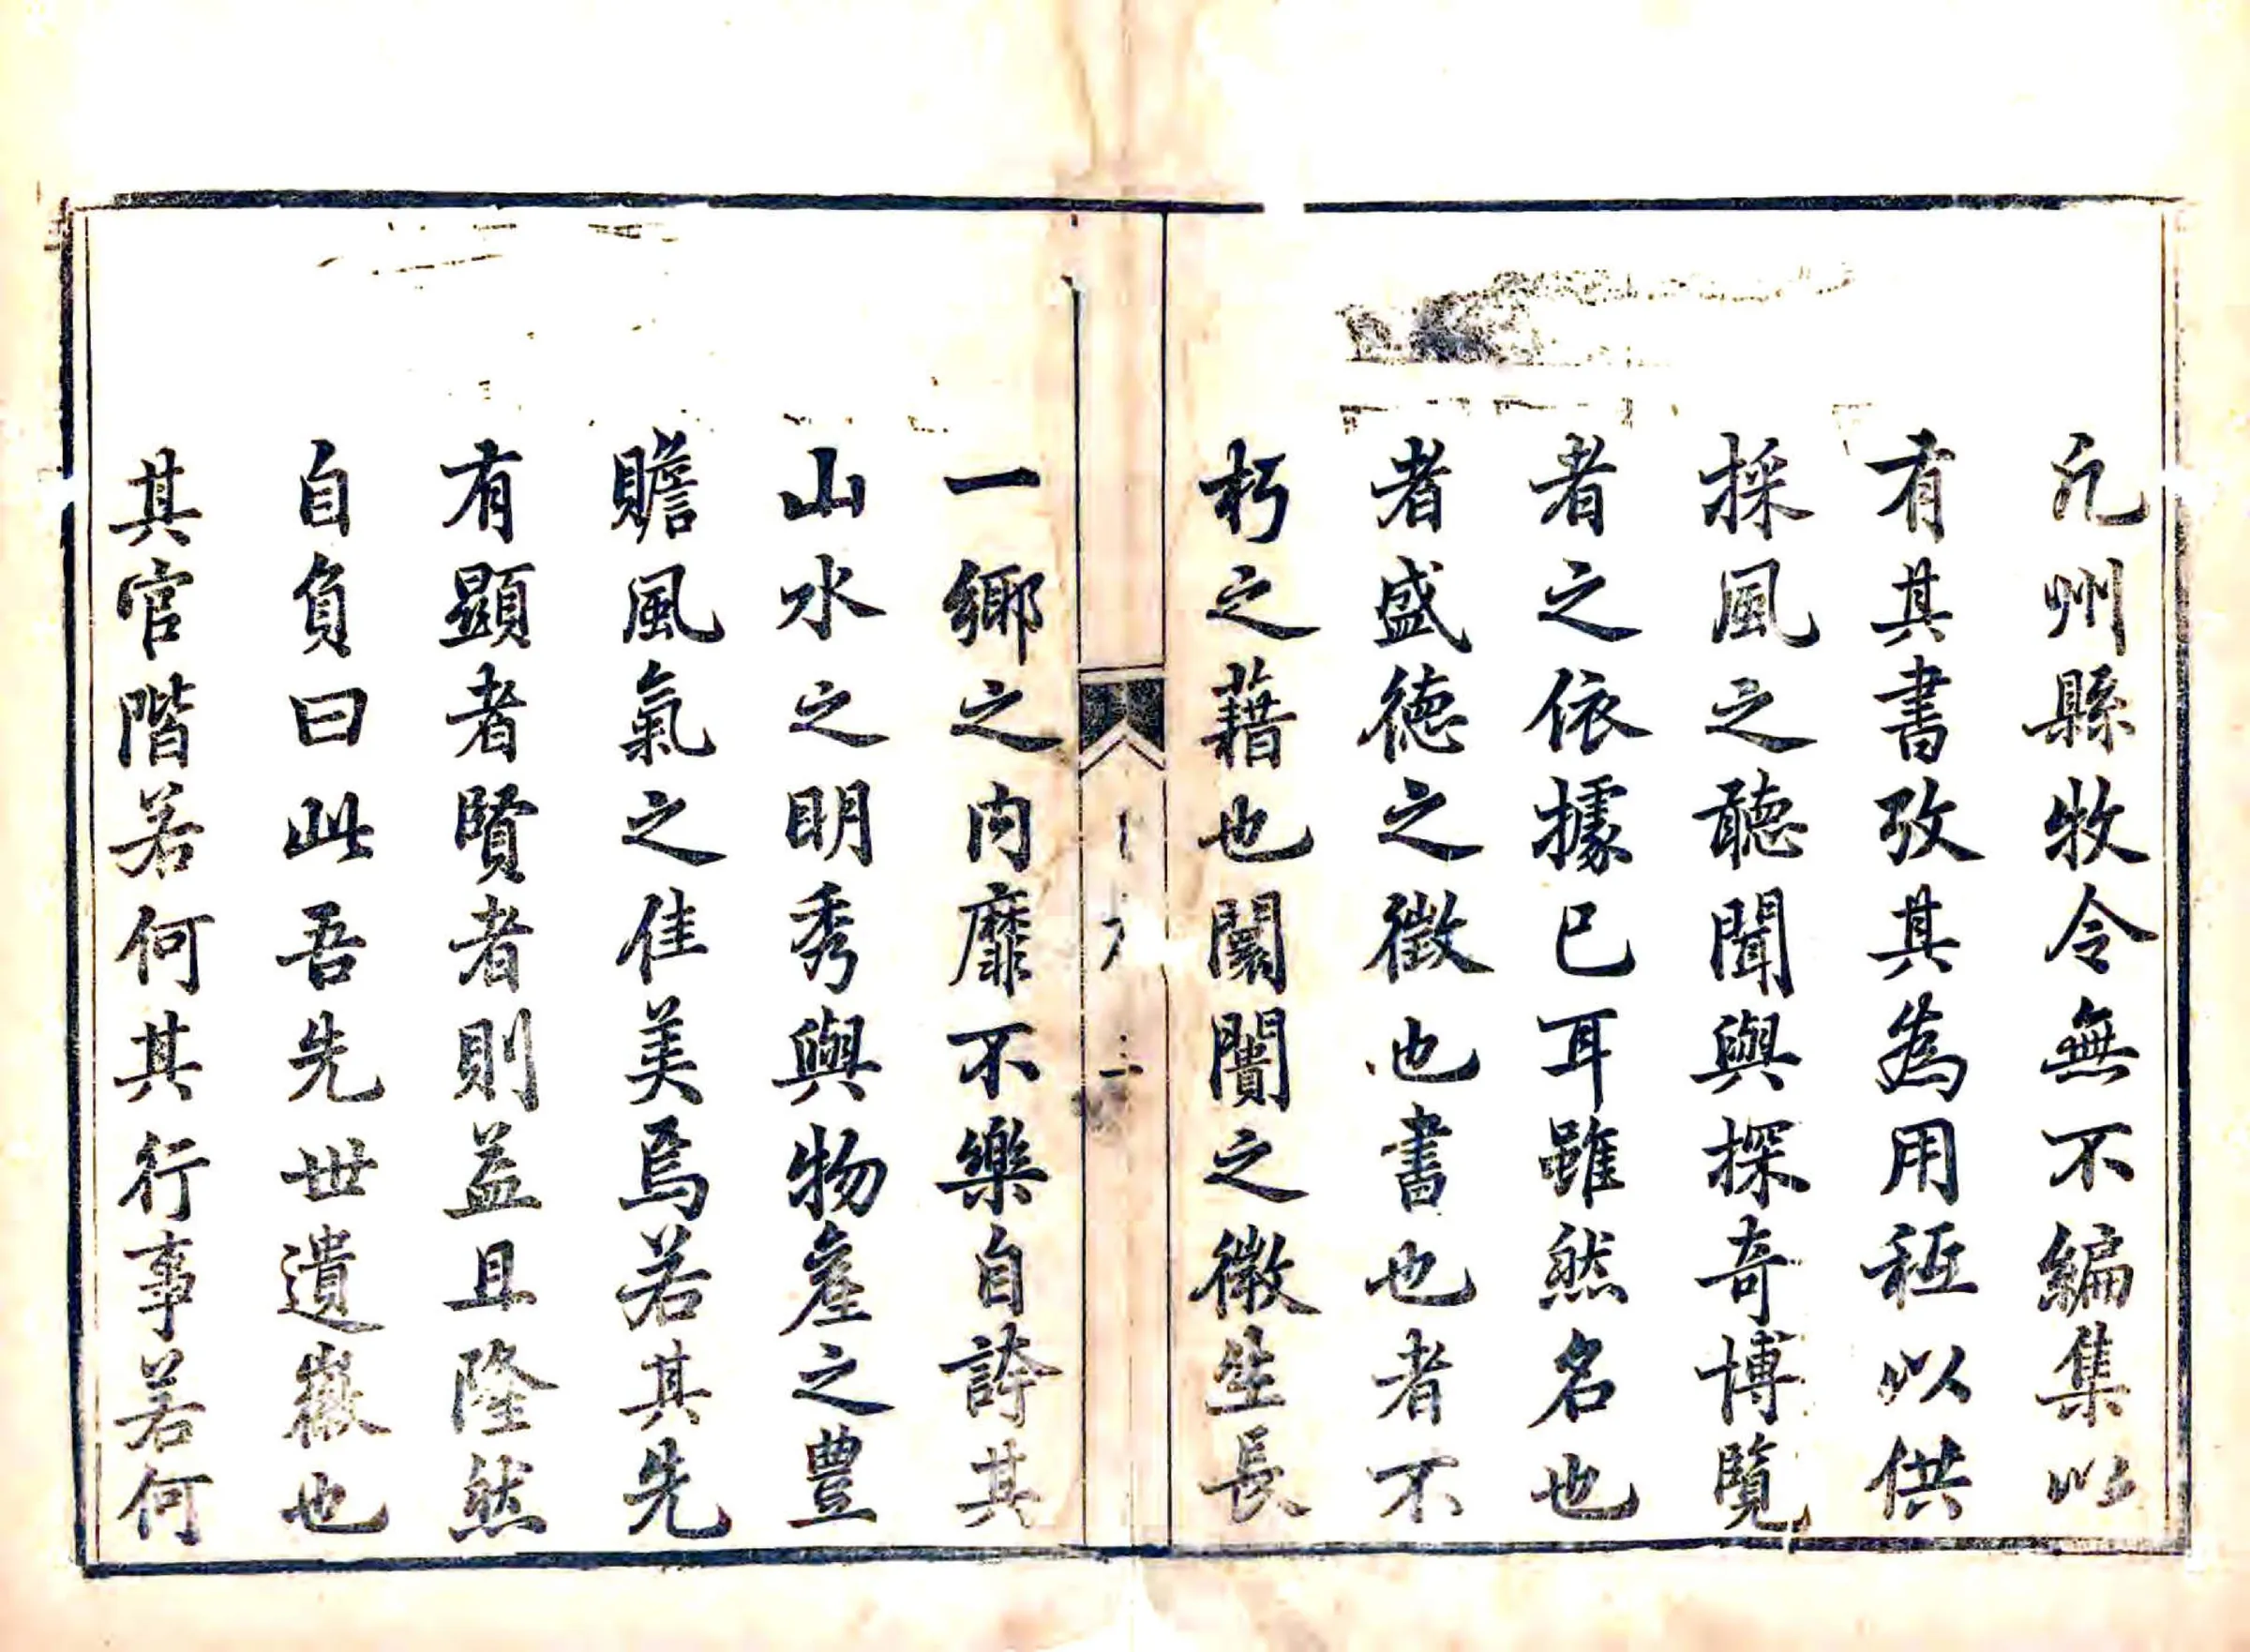 凡州縣牧令無不編集以
有其書攷其為用秪以供
採風之聽聞與探奇博覽
者之依據已耳雖然名也
者盛德之徵也書也者不
朽之藉也闤闠之微生長
一鄉之内靡不樂自誇其
山水之明秀與物産之豊
贍風氣之佳美焉若其先
有顯者賢者則益且隆然
自負曰此吾先世遺徽也
其官階若何其行事若何